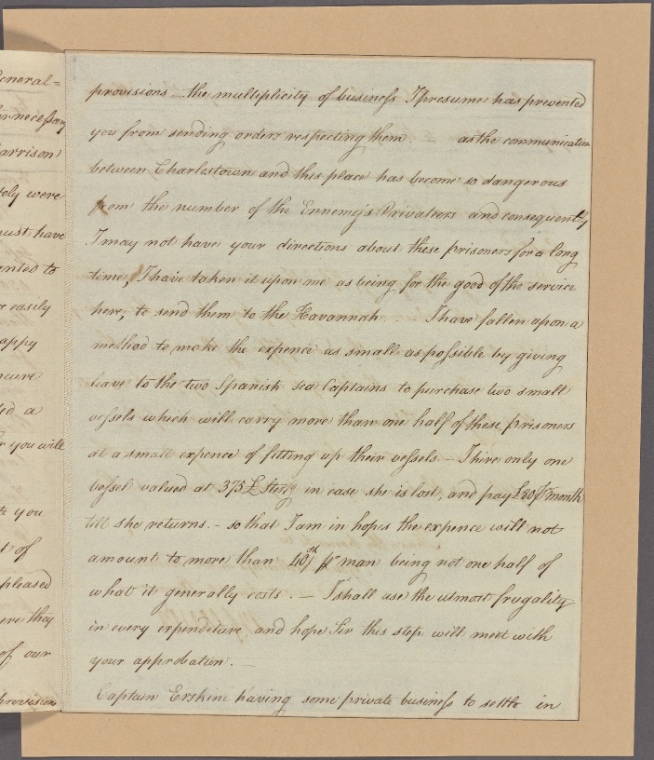 eneral=
necessary
arrison
tely were
must have
anted to
easily
appy
ed a
you will
you
of
pleased
ere they
of our
provision
provisions — the multiplicity of business I presume has prevented
you from sending orders respecting them. as the communication
between Charlestown and this place has become so dangerous
from the number of the Ennemy's Privatiers and consequently
I may not have your directions about these prisoners for a long
time, I have taken it upon me as being for the good of the service
here, to send them to the Havannah. I have fallen upon a
method to make the expence as small as possible by giving
leave to the two Spanish Sea Captains to purchase two small
vessels which will carry more than one half of these prisoners
at a small expence of fitting up their vessels. — I hire only one
vessel valued at 375£ Sterg in case she is lost, and pay £50 p month
till she returns. — so that I am in hopes the expence will not
amount to more than 40/ pr man being not one half of
what it generally costs. — I shall use the utmost frugality
in every expenditure and hope Sir this step will meet with
your approbation. —
Captain Erskine having some private business to settle in